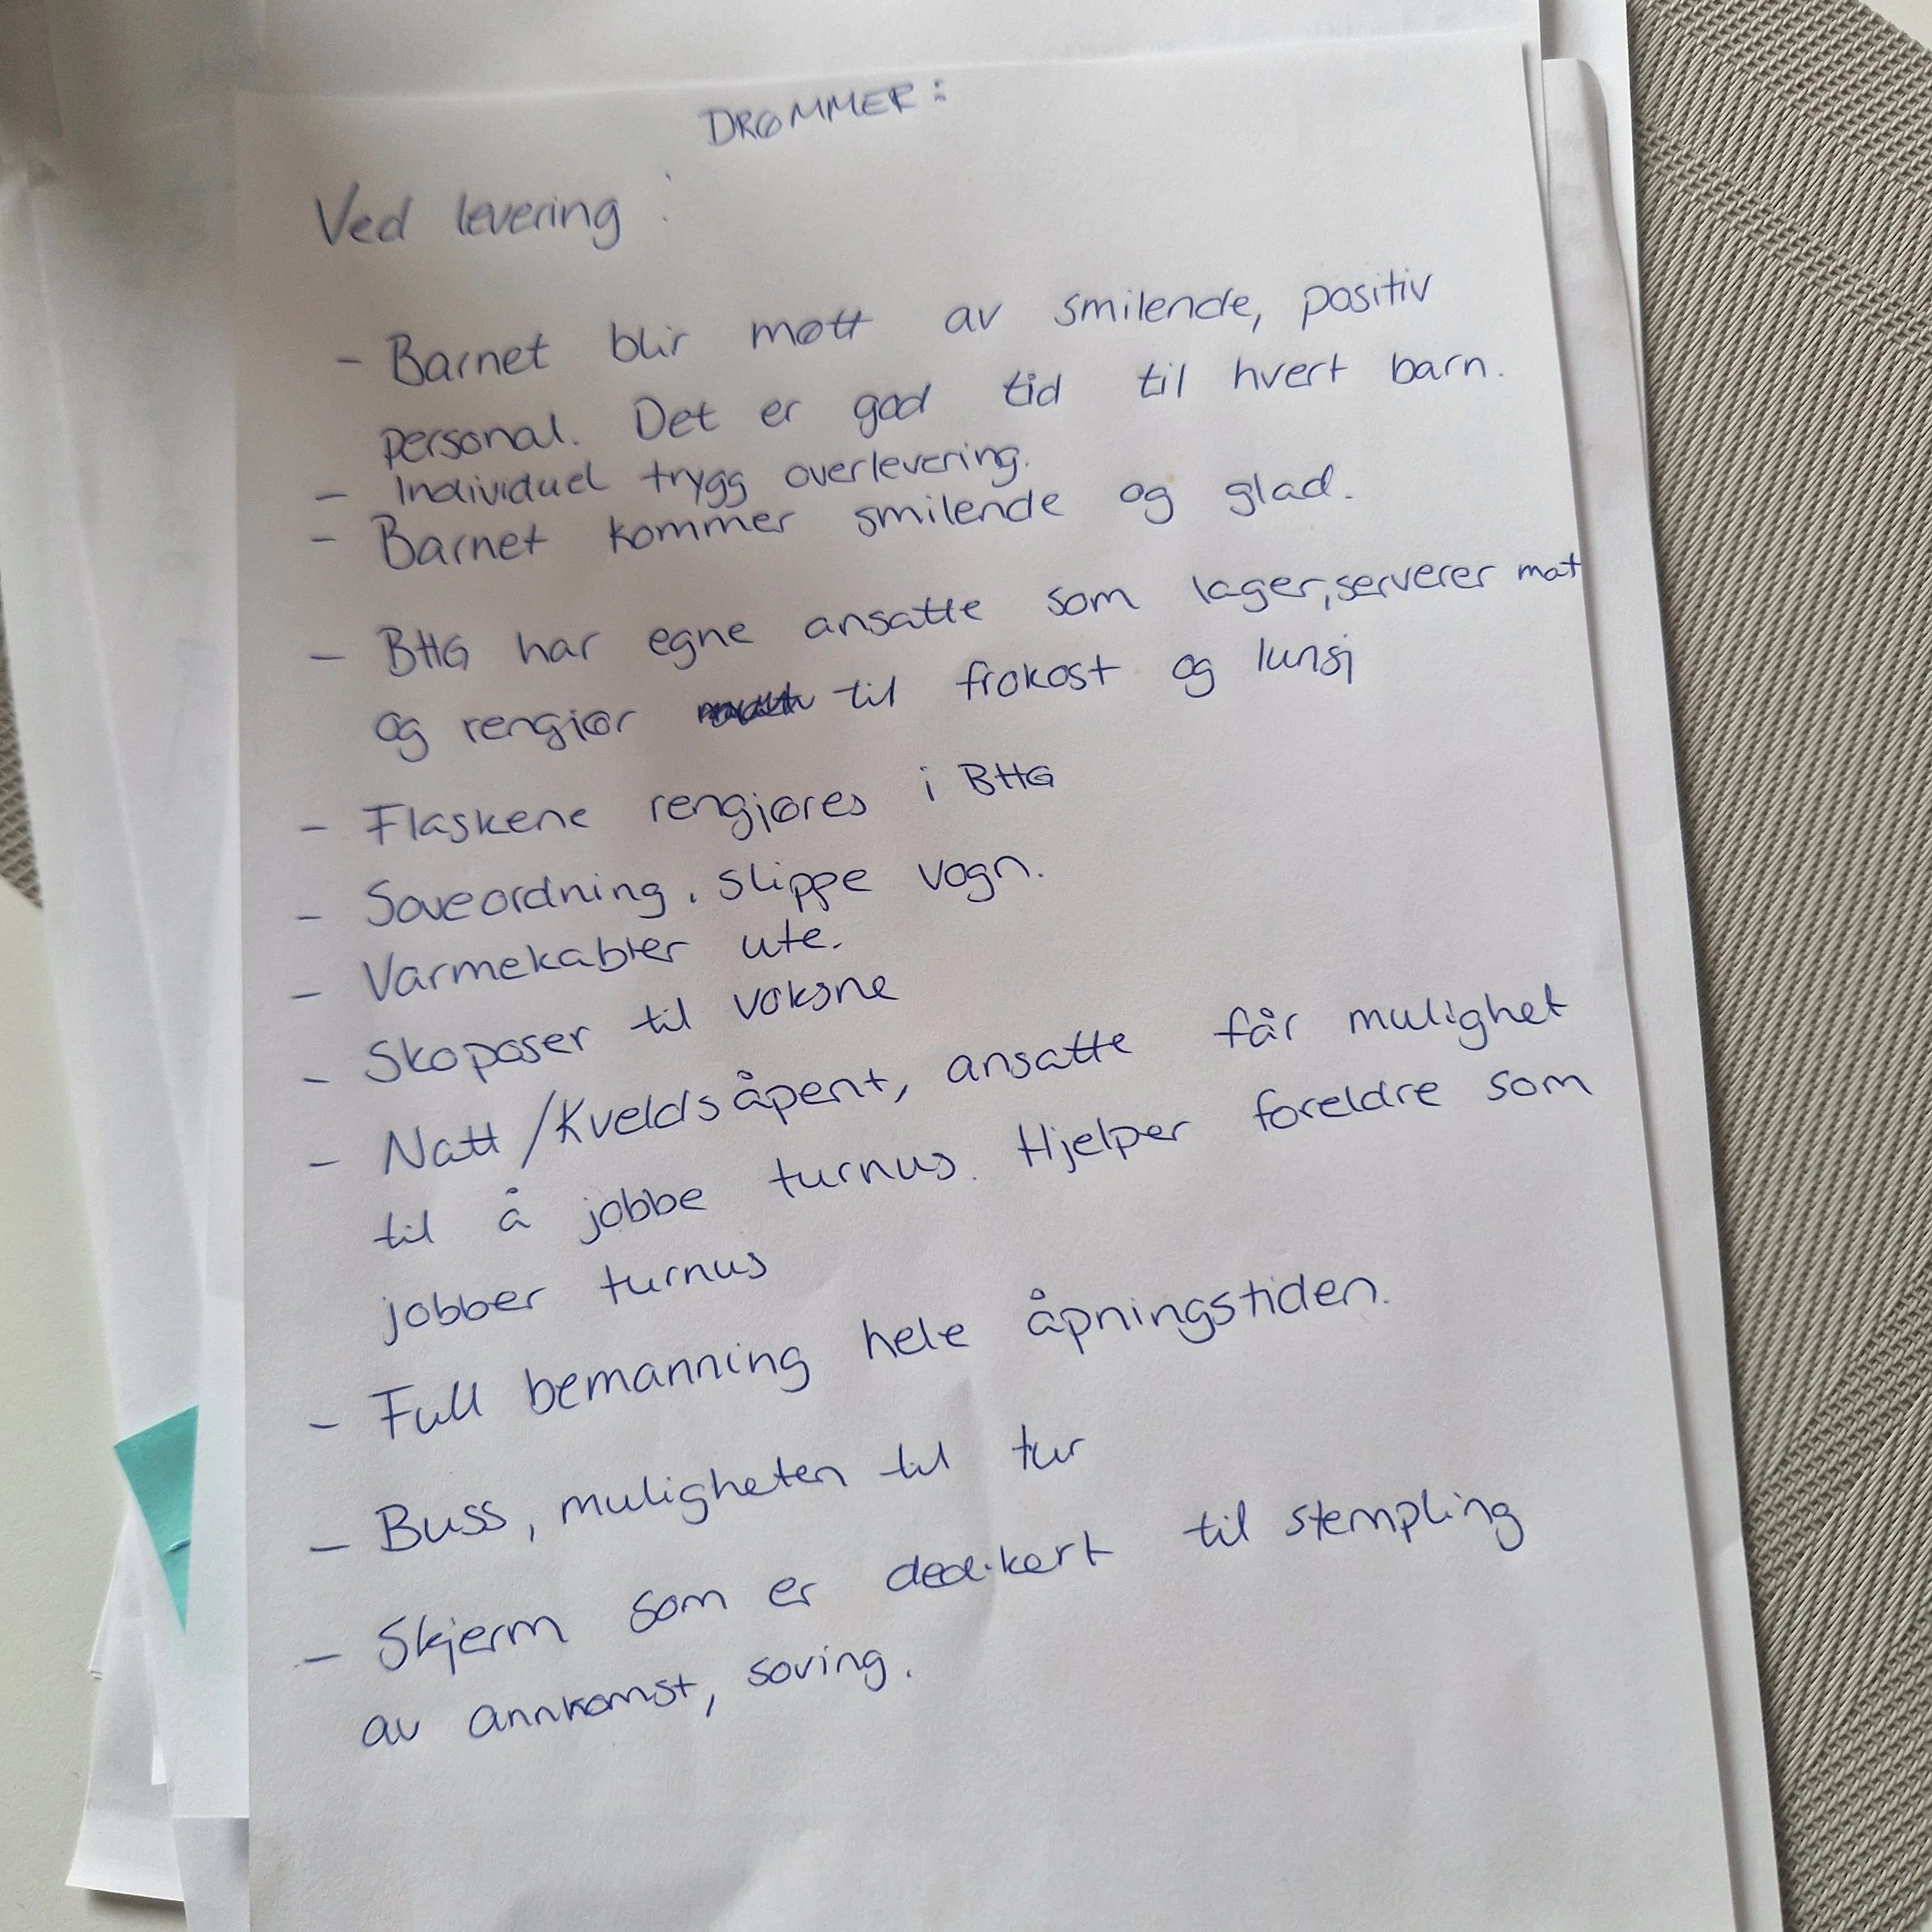 DRØMMER:
Ved levering:
- Barnet blir møtt av smilende, positiv
personal. Det er god tid til hvert barn.
- Individuel trygg overlevering.
- Barnet kommer smilende og glad.
- BHG har egne ansatte som lager, serverer mat
og rengjør til frokost og lunsj
- Flaskene rengjøres i BHG
- Soveordning, slippe vogn.
- Varmekabler ute.
- Skoposer til voksne
- Natt/Kveldsåpent, ansatte får mulighet
til å jobbe turnus. Hjelper foreldre som
jobber turnus
- Full bemanning hele åpningstiden.
- Buss, muligheten til tur
- Skjerm som er dedikert til stempling
av annkomst, soving.